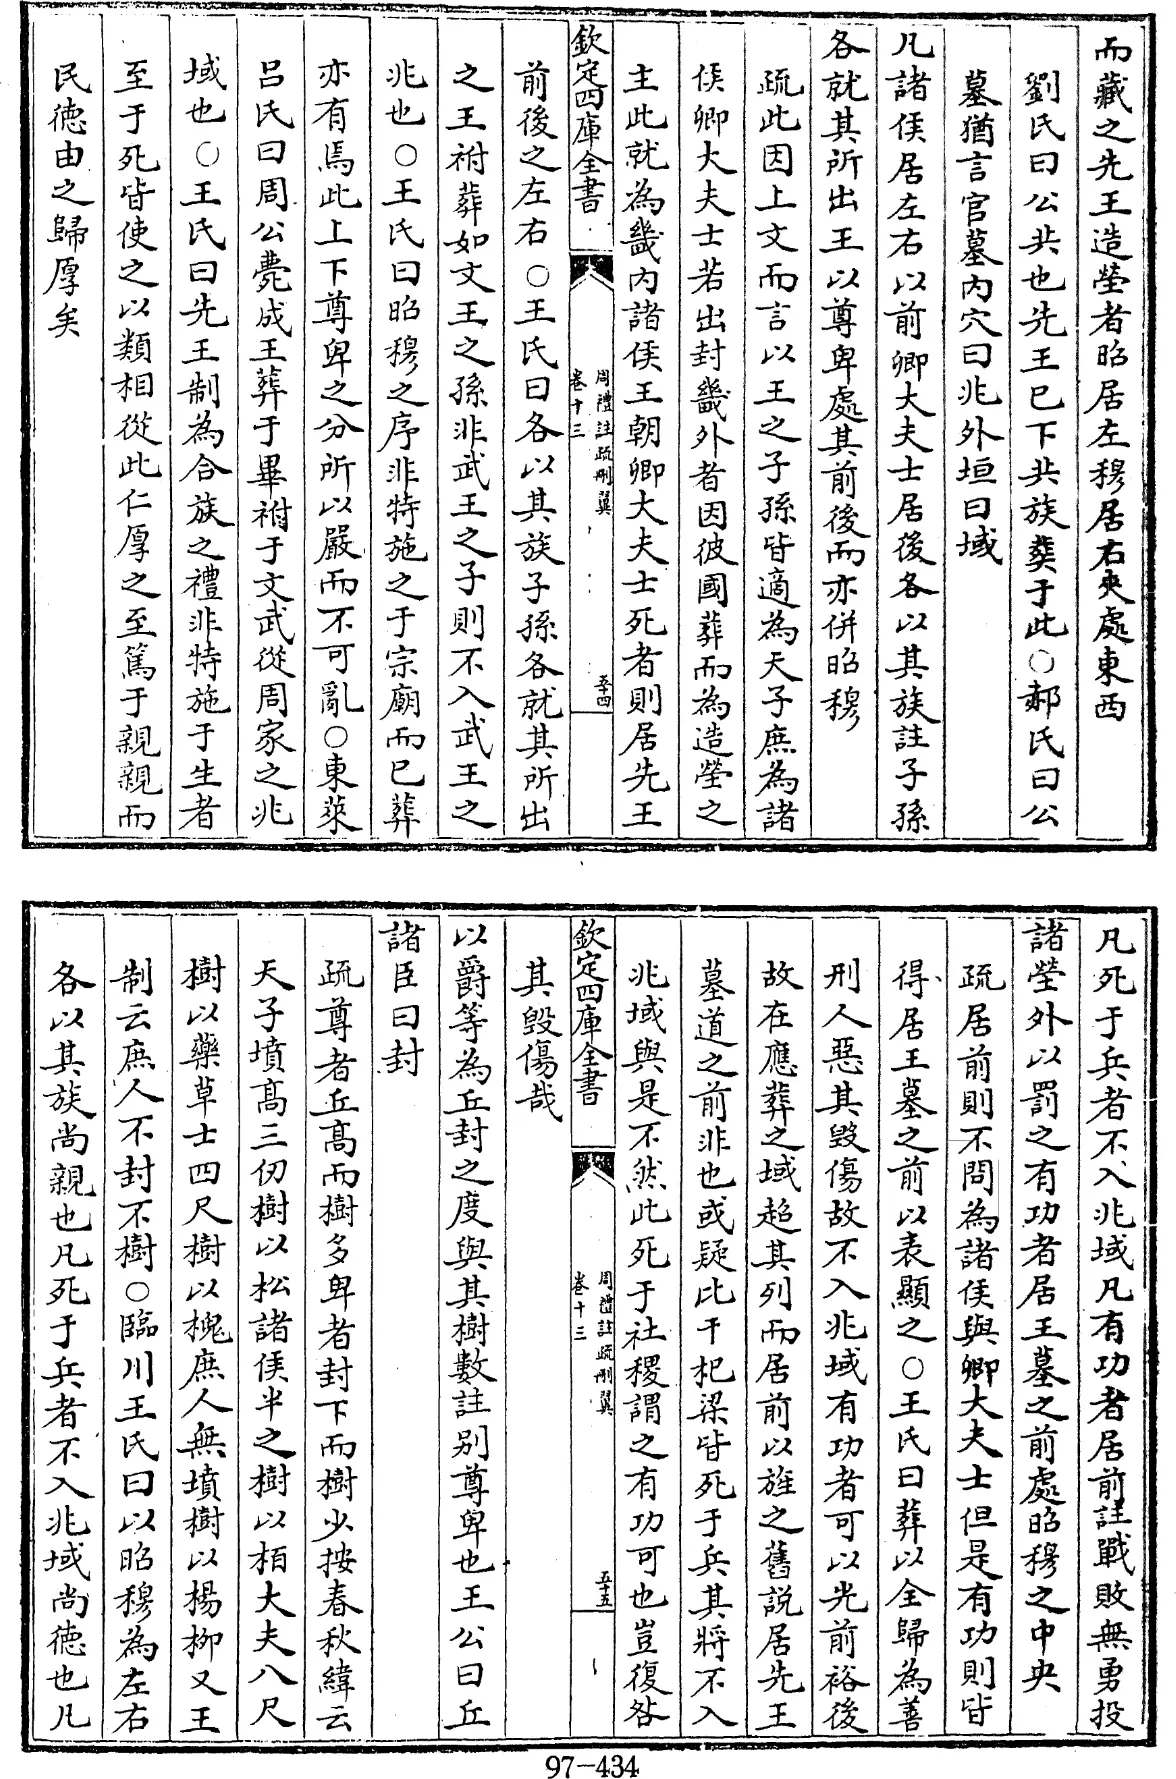 而藏之先王造塋者昭居左穆居右夾處東西
劉氏曰公共也先王已下共族葬于此○郝氏曰公
墓猶言官墓内穴曰兆外垣曰域
凡諸侯居左右以前卿大夫士居後各以其族註子孫
各就其所出王以尊卑處其前後而亦併昭穆
疏此因上文而言以王之子孫皆適為天子庶為諸
侯卿大夫士若出封畿外者因彼國葬而為造塋之
主此就為畿内諸侯王朝卿大夫士死者則居先王
欽定四庫全書
周禮註疏刪翼
卷十三
五十四
前後之左右○王氏曰各以其族子孫各就其所出
之王祔葬如文王之孫非武王之子則不入武王之
兆也○王氏曰昭穆之序非特施之于宗廟而已葬
亦有焉此上下尊卑之分所以嚴而不可亂○東萊
呂氏曰周公薨成王葬于畢祔于文武從周家之兆
域也○王氏曰先王制為合族之禮非特施于生者
至于死皆使之以類相從此仁厚之至篤于親親而
民德由之歸厚矣
凡死于兵者不入兆域凡有功者居前註戰敗無勇投
諸塋外以罰之有功者居王墓之前處昭穆之中央
疏居前則不問為諸侯與卿大夫士但是有功則皆
得居王墓之前以表顯之○王氏曰葬以全歸為善
刑人惡其毀傷故不入兆域有功者可以光前裕後
故在應葬之域超其列而居前以旌之舊説居先王
墓道之前非也或疑比干杞梁皆死于兵其將不入
兆域與是不然此死于社稷謂之有功可也豈復咎
欽定四庫全書
周禮註疏刪翼
卷十三
五十五
其毀傷哉
以爵等為丘封之度與其樹數註别尊卑也王公曰丘
諸臣曰封
疏尊者丘髙而樹多卑者封下而樹少按春秋緯云
天子墳髙三仞樹以松諸侯半之樹以栢大夫八尺
樹以藥草士四尺樹以槐庶人無墳樹以楊柳又王
制云庶人不封不樹○臨川王氏曰以昭穆為左右
各以其族尚親也凡死于兵者不入兆域尚德也凡
97-434